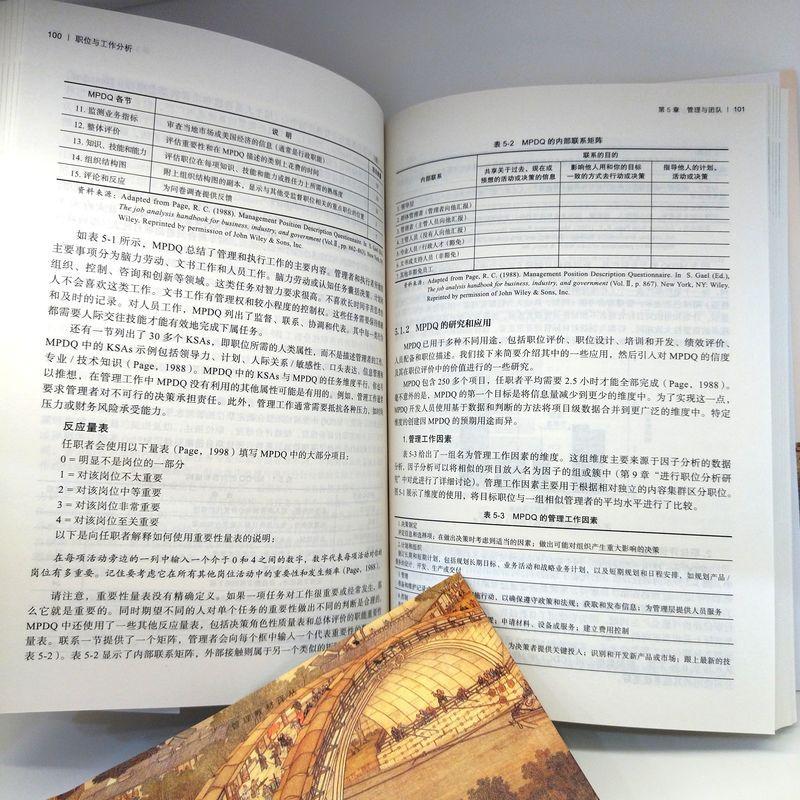 100 | 职位与工作分析
MPDQ 各节
说 明
11. 监测业务指标
审查当地市场或美国经济的信息（通常是行政职能）
12. 整体评价
评估重要性和在 MPDQ 描述的类别上花费的时间
13. 知识、技能和能力
评估职位在每项知识、技能和能力或胜任力上所需的熟练度
14. 组织结构图
附上组织结构图的副本，显示与其他受监督职位相关的重点职位的位置
15. 评论和反应
为问卷调查提供反馈
资料来源：Adapted from Page, R. C. (1988). Management Position Description Questionnaire. In S. Gael
The job analysis handbook for business, industry, and government (Vol.Ⅱ, pp. 862–863). New York, NY:
Wiley. Reprinted by permission of John Wiley & Sons, Inc.
如表 5-1 所示，MPDQ 总结了管理和执行工作的主要内容。管理者和执行者
主要事项分为脑力劳动、文书工作和人员工作。脑力劳动或认知任务囊括决策、计划和
组织、控制、咨询和创新等领域。这类任务对智力要求很高。不喜欢长时间
人不会喜欢这类工作。文书工作有管理权和较小程度的控制权。这些任务需要
和及时的记录。对人员工作，MPDQ 列出了监督、联系、协调和代表。其中每一
都需要人际交往技能才能有效地完成下属任务。
还有一节列出了 30 多个 KSAs，即职位所需的人类属性，而不是描述管理者的工作。
MPDQ 中的 KSAs 示例包括领导力、计划、人际关系 / 敏感性、口头表达、信息管理和
专业 / 技术知识（Page, 1988）。MPDQ 中的 KSAs 与 MPDQ 的任务维度平行。你也可
以推想，在管理工作中 MPDQ 没有利用的其他属性可能是有用的。例如，管理工作通常
要求管理者对不可行的决策承担责任。此外，管理工作通常需要抵抗各种压力，如时间
压力或财务风险承受能力。
反应量表
任职者会使用以下量表（Page, 1998）填写 MPDQ 中的大部分项目：
0 = 明显不是岗位的一部分
1 = 对该岗位不太重要
2 = 对该岗位中等重要
3 = 对该岗位非常重要
4 = 对该岗位至关重要
以下是向任职者解释如何使用重要性量表的说明：
在每项活动旁边的一列中输入一个介于 0 和 4 之间的数字，数字代表每项活动对你的
岗位有多重要。记住要考虑它在所有其他岗位活动中的重要性和发生频率（Page, 1988）。
请注意，重要性量表没有精确定义。如果一项任务对工作很重要或经常发生，那
么它就是重要的。同时期望不同的人对单个任务的重要性做出不同的判断是合理的。
MPDQ 中还使用了一些其他反应量表，包括决策角色性质量表和总体评价的职能重要性
量表。联系一节提供了一个矩阵，管理者会向每个框中输入一个代表重要性的
表 5-2）。表 5-2 显示了内部联系矩阵，外部接触则属于另一个类似的
第 5 章 管理与团队 | 101
表 5-2 MPDQ 的内部联系矩阵
联系的目的
内部联系
共享关于过去、现在或
预想的活动或决策的信息
影响他人用和你的目标
一致的方式去行动或决策
指导他人的计划、
活动或决策
1. 领导层
2. 群体管理者（管理者向他汇报）
3. 管理者（主管人员向他汇报）
4. 主管人员（没有人向他汇报）
5. 专业人员 / 行政人才（豁免）
6. 文书或支持人员（非豁免）
7. 其他非豁免员工
资料来源：Adapted from Page, R. C. (1988). Management Position Description Questionnaire. In S. Gael (Ed.),
The job analysis handbook for business, industry, and government (Vol.Ⅱ, p. 867). New York, NY: Wiley.
Reprinted by permission of John Wiley & Sons, Inc.
5.1.2 MPDQ 的研究和应用
MPDQ 已用于多种不同用途，包括职位评价、职位设计、培训和开发、绩效评价、
人员配备和职位描述。我们接下来简要介绍其中的一些应用，然后引入对 MPDQ 的信度
及其在职位评价中的价值进行的一些研究。
MPDQ 包含 250 多个项目，任职者平均需要 2.5 小时才能全部完成（Page, 1988）。
毫不意外的是，MPDQ 的第一个目标是将信息量减少到更少的维度中。为了实现这一点，
MPDQ 开发人员使用基于数据和判断的方法将项目级数据合并到更广泛的维度中。特定
维度的创建因 MPDQ 的预期用途而异。
1. 管理工作因素
表 5-3 给出了一组名为管理工作因素的维度。这组维度主要来源于因子分析的数据
分析，因子分析可以将相似的项目放入名为因子的组或簇中（第 9 章“进行职位分析研
究”中对此进行了详细讨论）。管理工作因素主要用于根据相对独立的内容集群区分职位。
图 5-1 展示了维度的使用，将目标职位与一组相似管理者的平均水平进行了比较。
表 5-3 MPDQ 的管理工作因素
1. 决策制定
评定信息和选择项；在做出决策时考虑到适当的因素；做出可能对组织产生重大影响的决策
2. 计划和组织
制定长期和短期计划，包括规划长期目标、业务活动和战略业务计划，以及短期规划和日程安排，如规划产品 /
服务的设计、开发、生产或交付
3. 管理
行动，以确保遵守政策和法规；获取和发布信息；为管理层提供人员服务
申请材料、设备或服务；建立费用控制
为决策者提供关键投入；识别和开发新产品或市场；跟上最新的技
管理教材译丛